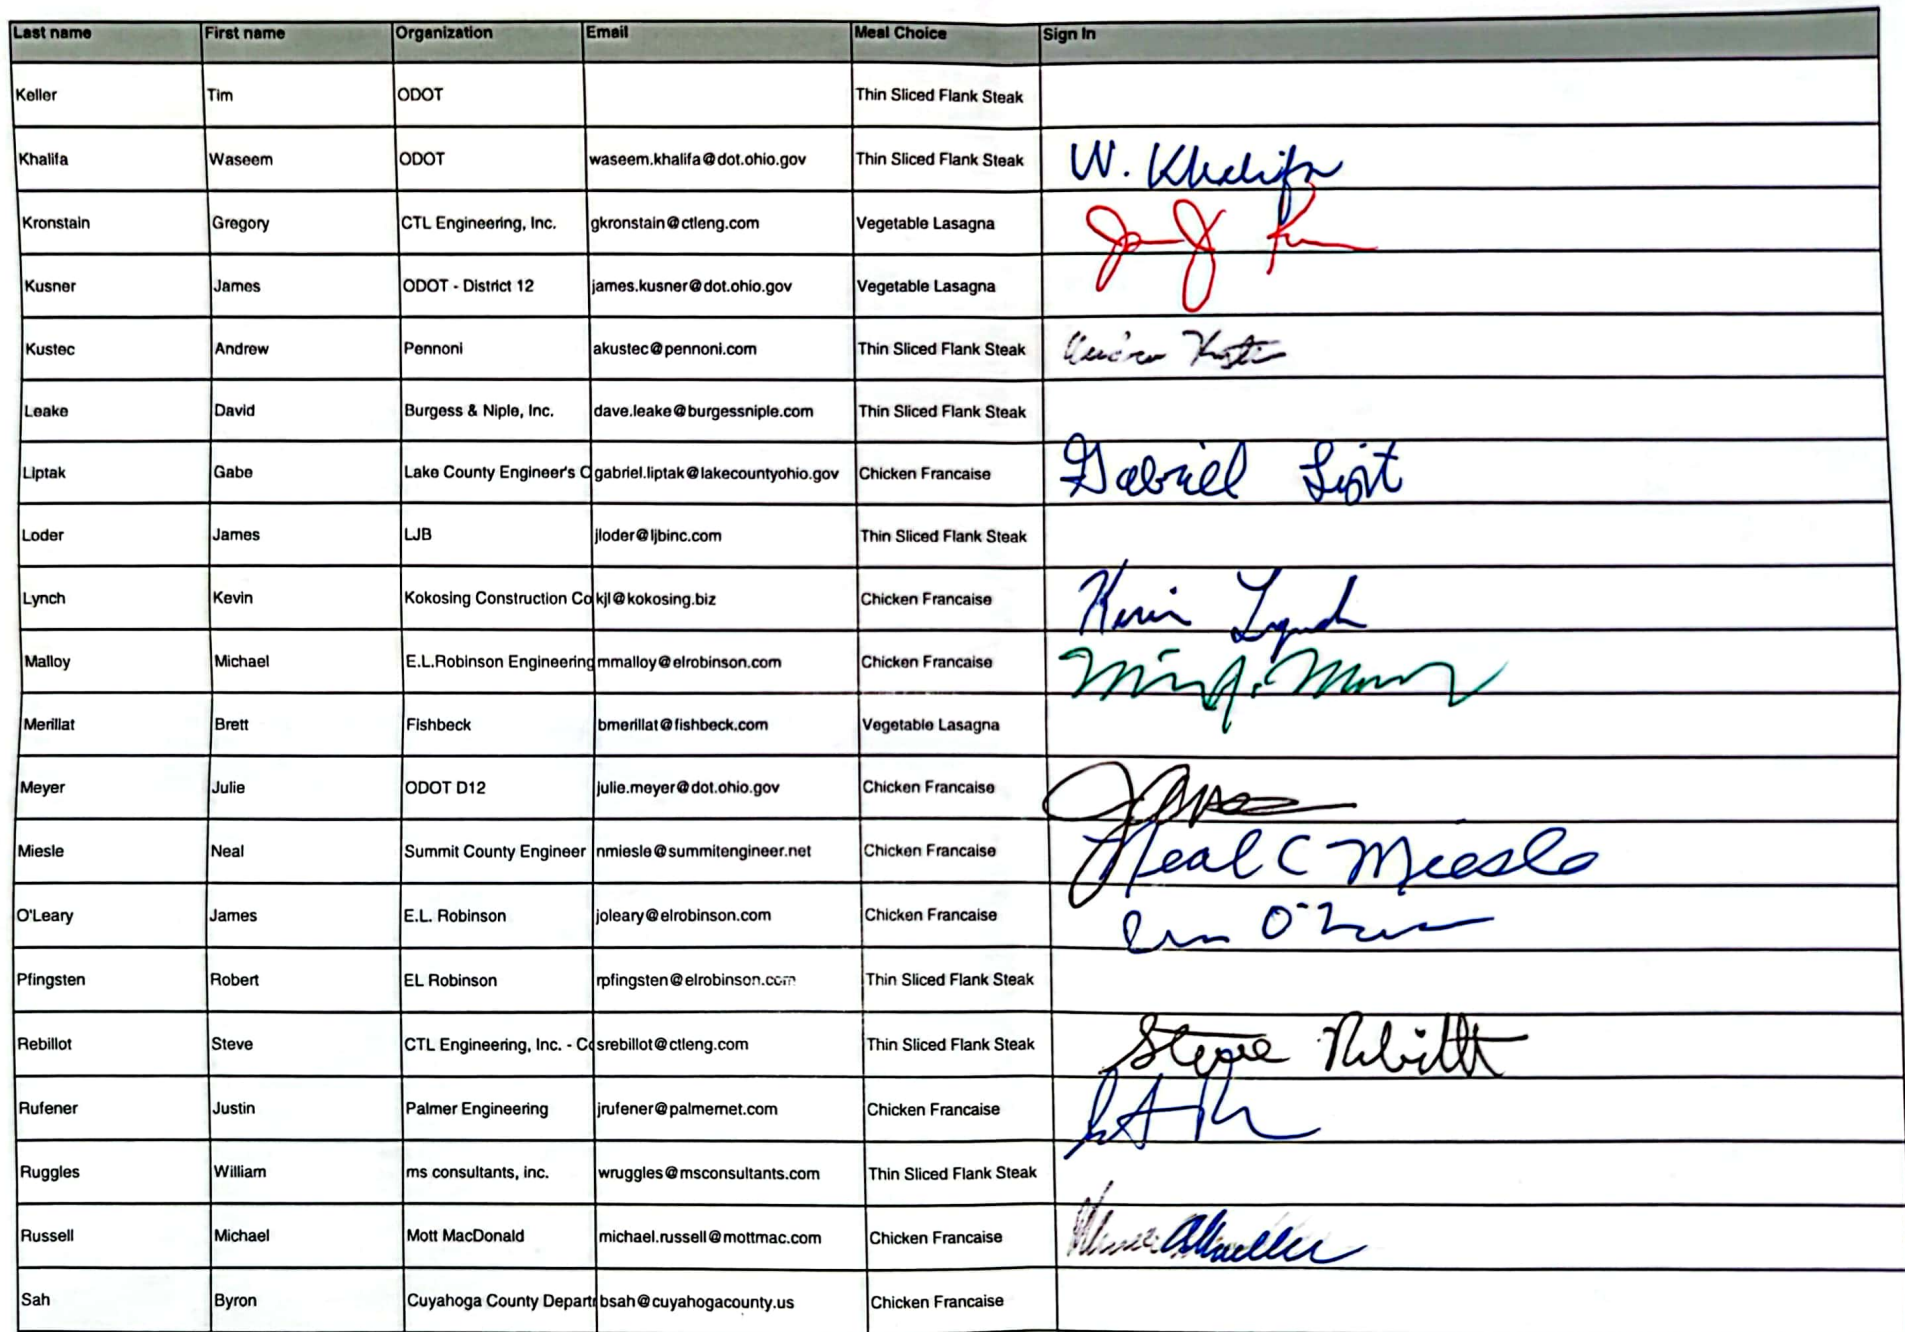 Last name First name Organization Email Meal Choice Sign In
Keller Tim ODOT Thin Sliced Flank Steak
Khalifa Waseem ODOT waseem.khalifa@dot.ohio.gov Thin Sliced Flank Steak W. Khalifa
Kronstain Gregory CTL Engineering, Inc. gkronstain@ctleng.com Vegetable Lasagna
Kusner James ODOT - District 12 james.kusner@dot.ohio.gov Vegetable Lasagna
Kustec Andrew Pennoni akustec@pennoni.com Thin Sliced Flank Steak
Leake David Burgess & Niple, Inc. dave.leake@burgessniple.com Thin Sliced Flank Steak
Liptak Gabe Lake County Engineer's O gabriel.liptak@lakecountyohio.gov Chicken Francaise Gabriel
Loder James LJB jloder@ljbinc.com Thin Sliced Flank Steak
Lynch Kevin Kokosing Construction Co kjl@kokosing.biz Chicken Francaise Kevin Lynch
Malloy Michael E.L.Robinson Engineering mmalloy@elrobinson.com Chicken Francaise
Merillat Brett Fishbeck bmerillat@fishbeck.com Vegetable Lasagna
Meyer Julie ODOT D12 julie.meyer@dot.ohio.gov Chicken Francaise
Miesle Neal Summit County Engineer nmiesle@summitengineer.net Chicken Francaise Neal C Miesle
O'Leary James E.L. Robinson joleary@elrobinson.com Chicken Francaise
Pfingsten Robert EL Robinson rpfingsten@elrobinson.com Thin Sliced Flank Steak
Rebillot Steve CTL Engineering, Inc. - Co srebillot@ctleng.com Thin Sliced Flank Steak Steve Rebillot
Rufener Justin Palmer Engineering jrufener@palmernet.com Chicken Francaise
Ruggles William ms consultants, inc. wruggles@msconsultants.com Thin Sliced Flank Steak
Russell Michael Mott MacDonald michael.russell@mottmac.com Chicken Francaise
Sah Byron Cuyahoga County Departm bsah@cuyahogacounty.us Chicken Francaise